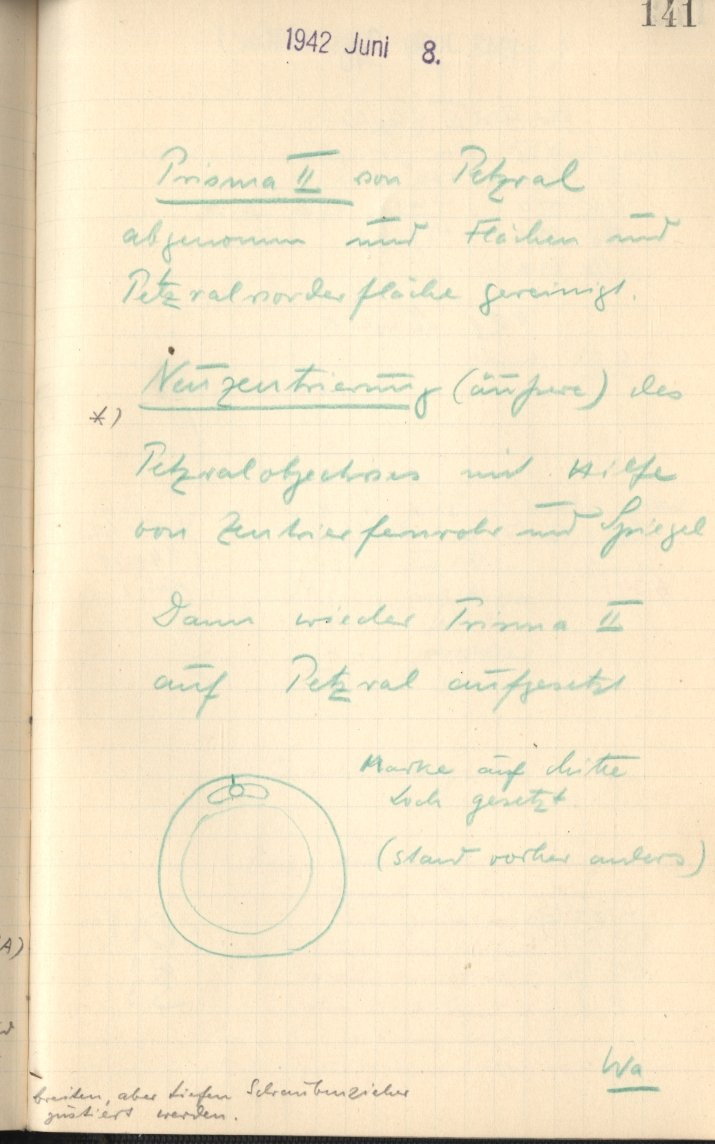 141
1942 Juni 8.
Prisma II von Petzval
abgenomm und Flächen und
Petzvalvorderfläche gereinigt.
Neuzentrierung (äußere) des
*)
Petzvalobjectives mit Hilfe
von Zentrierfernrohr und Spiegel
Dann wieder Prisma II
auf Petzval aufgesetzt
Marke auf Mitte
Loch gesetzt
(stand vorher anders)
A)
Wa
breiten, aber tiefen Schraubenzieher
justiert werden.